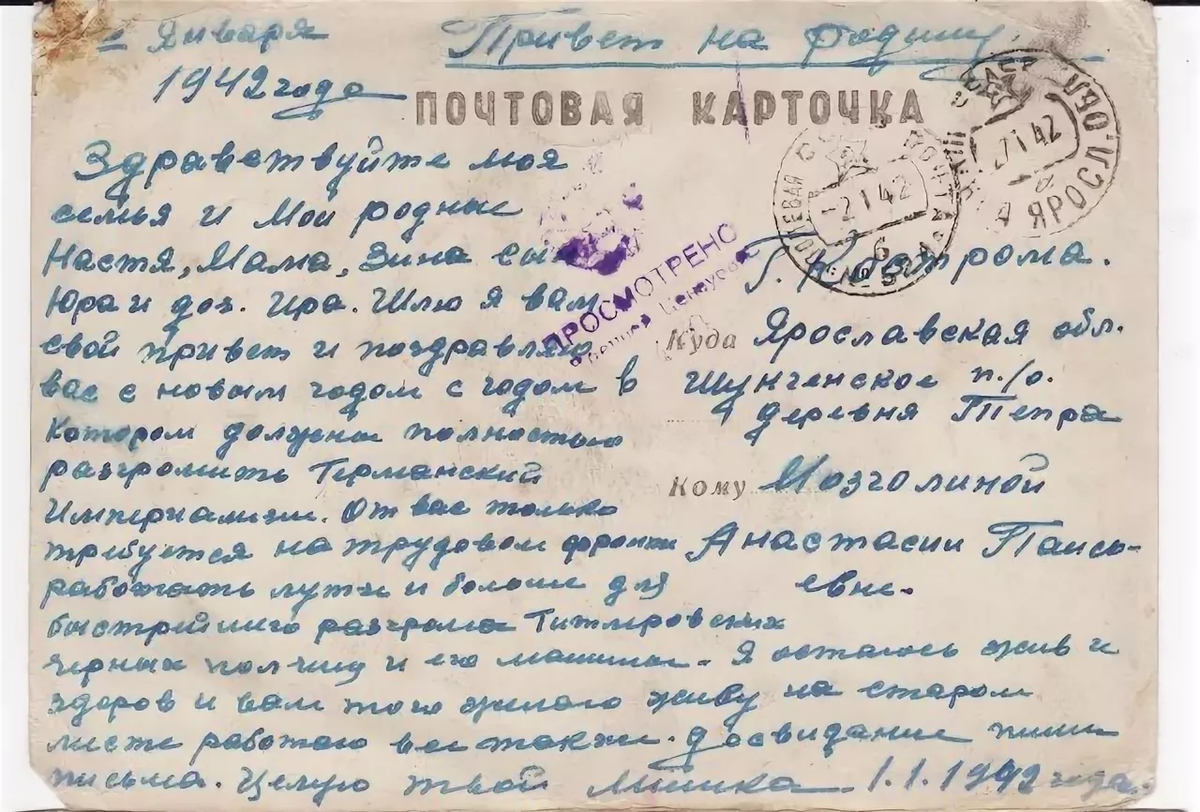 1 Января
1942 года
Привет на родину.
ПОЧТОВАЯ КАРТОЧКА
Здравствуйте моя
семья и Мои родные
Настя, Мама, Зина сын
Юра и доч. Ира. Шлю я вам
свой привет и поздравляю
вас с новым годом с годом в
котором должны полностью
разгромить Германский
Империализм. От вас только
требуется на трудовом фронте
работать лутше и больше для
быстрейшего разгрома Гитлеровских
черных полчищ и его машины. Я остаюсь жив и
здоров и вам того желаю живу на старом
месте работаю все также. досвидание пиши
письма. Целую твой Мишка. 1.1.1942 года.
ПОЛЕВАЯ ПОЧТА
-2 1 42
6
ЯРОСЛ. ОБЛ
1 42
ПРОСМОТРЕНО
Военной Цензурой
г. Кострома.
Куда Ярославская обл.
Шунгенское п./о.
деревня Тепра
Кому Мозголиной
Анастасии Паись-
евне.